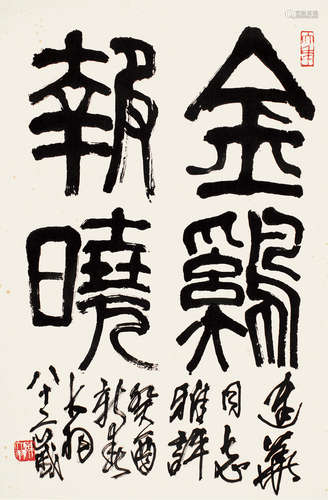 金鷄
報曉
建華
同志
雅評
癸酉
新春
大羽
八十二歲